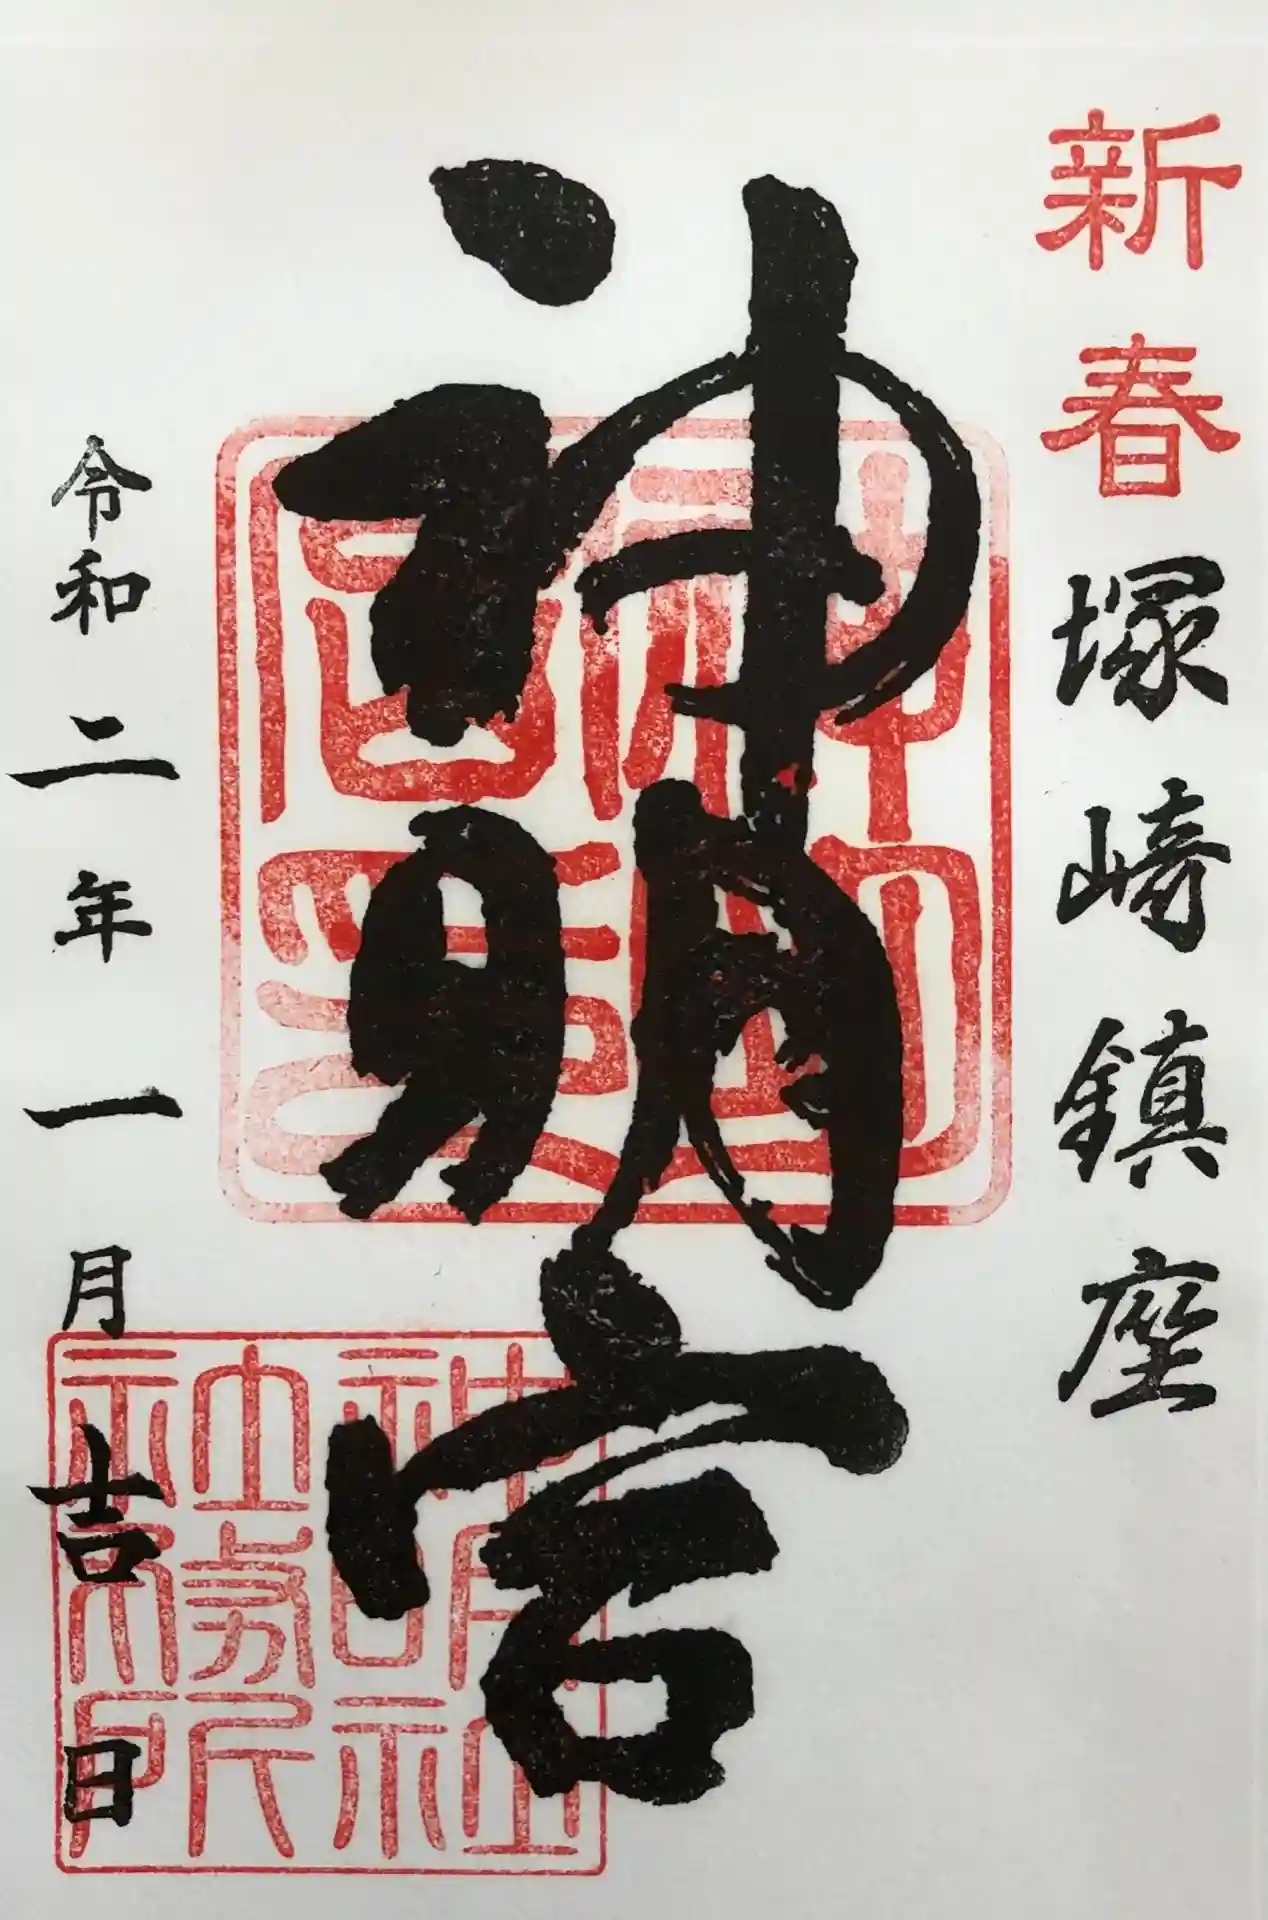 新春
塚崎鎮座
神明宮
神明宮
神明社社務所
令和二年一月吉日